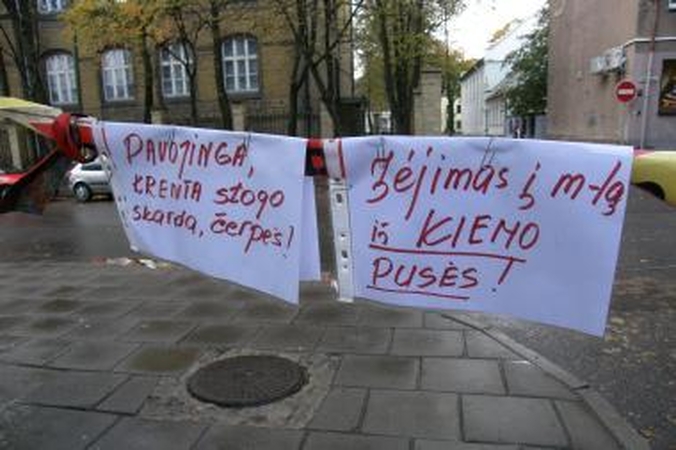 PAVOJINGA,
KRENTA stogo
skarda, čerpės!
Įėjimas į m-lą
iš KIEMO
PUSĖS!